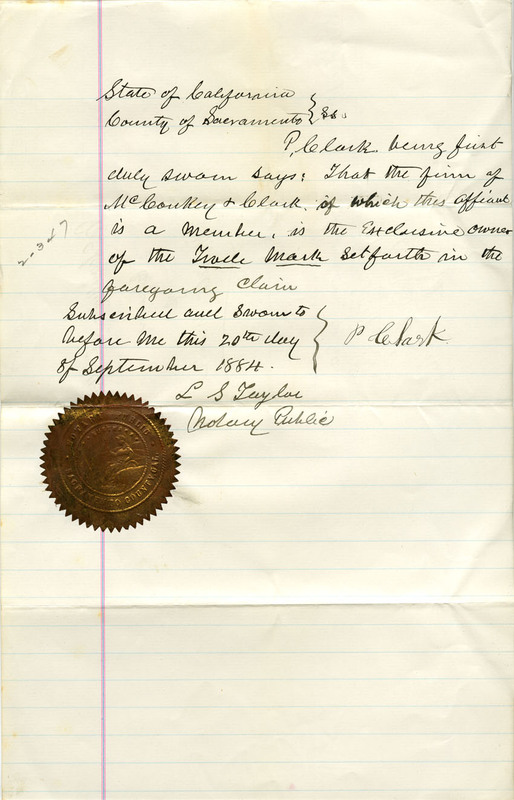 State of California
County of Sacramento } ss.
P, Clark being first
duly sworn says: That the firm of
McConkey & Clark of which this affiant
is a member, is the Exclusive owner
of the Trade Mark Setforth in the
foregoing claim
Subscribed and Sworn to
before me this 20th day
of September 1884.
P Clark
L S Taylor
Notary Public
2347